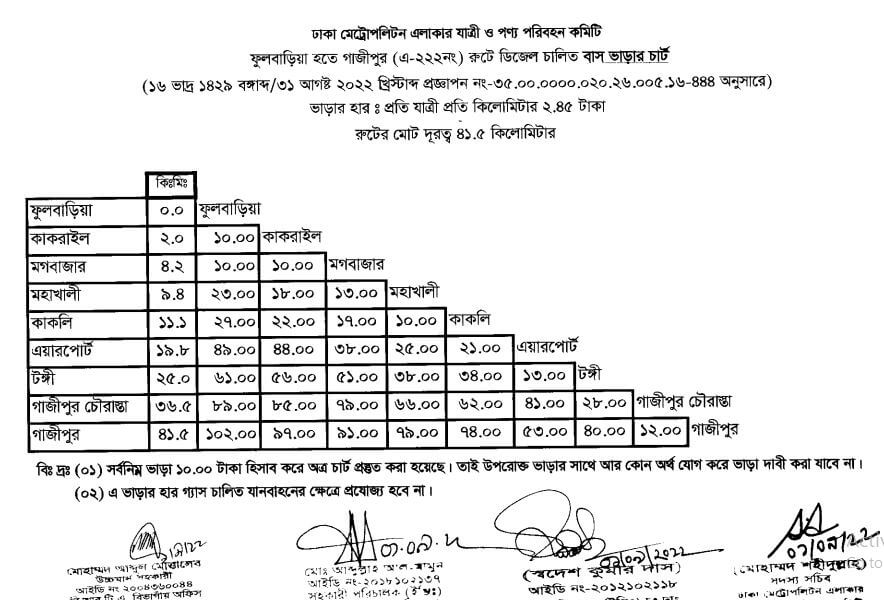 ঢাকা মেট্রোপলিটন এলাকার যাত্রী ও পণ্য পরিবহন কমিটি
ফুলবাড়িয়া হতে গাজীপুর (এ-২২২নং) রুটে ডিজেল চালিত বাস ভাড়ার চার্ট
(১৬ ভাদ্র ১৪২৯ বঙ্গাব্দ/৩১ আগষ্ট ২০২২ খ্রিস্টাব্দ প্রজ্ঞাপন নং-৩৫.০০.০০০০.০২০.২৬.০০৫.১৬-৪৪৪ অনুসারে)
ভাড়ার হার ঃ প্রতি যাত্রী প্রতি কিলোমিটার ২.৪৫ টাকা
রুটের মোট দূরত্ব ৪১.৫ কিলোমিটার
কিঃমিঃ
ফুলবাড়িয়া ০.০ ফুলবাড়িয়া
কাকরাইল ২.০ ১০.০০ কাকরাইল
মগবাজার ৪.২ ১০.০০ ১০.০০ মগবাজার
মহাখালী ৯.৪ ২৩.০০ ১৮.০০ ১৩.০০ মহাখালী
কাকলি ১১.১ ২৭.০০ ২২.০০ ১৭.০০ ১০.০০ কাকলি
এয়ারপোর্ট ১৯.৮ ৪৯.০০ ৪৪.০০ ৩৮.০০ ২৫.০০ ২১.০০ এয়ারপোর্ট
টঙ্গী ২৫.০ ৬১.০০ ৫৬.০০ ৫১.০০ ৩৮.০০ ৩৪.০০ ১৩.০০ টঙ্গী
গাজীপুর চৌরাস্তা ৩৬.৫ ৮৯.০০ ৮৫.০০ ৭৯.০০ ৬৬.০০ ৬২.০০ ৪১.০০ ২৮.০০ গাজীপুর চৌরাস্তা
গাজীপুর ৪১.৫ ১০২.০০ ৯৭.০০ ৯১.০০ ৭৯.০০ ৭৪.০০ ৫৩.০০ ৪০.০০ ১২.০০ গাজীপুর
বিঃ দ্রঃ (০১) সর্বনিম্ন ভাড়া ১০.০০ টাকা হিসাব করে অত্র চার্ট প্রস্তুত করা হয়েছে। তাই উপরোক্ত ভাড়ার সাথে আর কোন অর্থ যোগ করে ভাড়া দাবী করা যাবে না।
(০২) এ ভাড়ার হার গ্যাস চালিত যানবাহনের ক্ষেত্রে প্রযোজ্য হবে না।
০১/০৯/২০২২ ০১/০৯/২২
মোহাম্মদ মোঃ আব্দুল্লাহ আল-মামুন (স্বদেশ কুমার দাস) (মোহাম্মদ শহীদুল্লাহ)
উচ্চমান সহকারী আইডি নং-২০১৮১০২১৩৭ আইডি নং-২০১২১০২১১৮ সদস্য সচিব
আইডি নং ২০০৪৩৬০০৪৪ সহকারী পরিচালক ঢাকা মেট্রোপলিটন এলাকার
বিভাগীয় অফিস